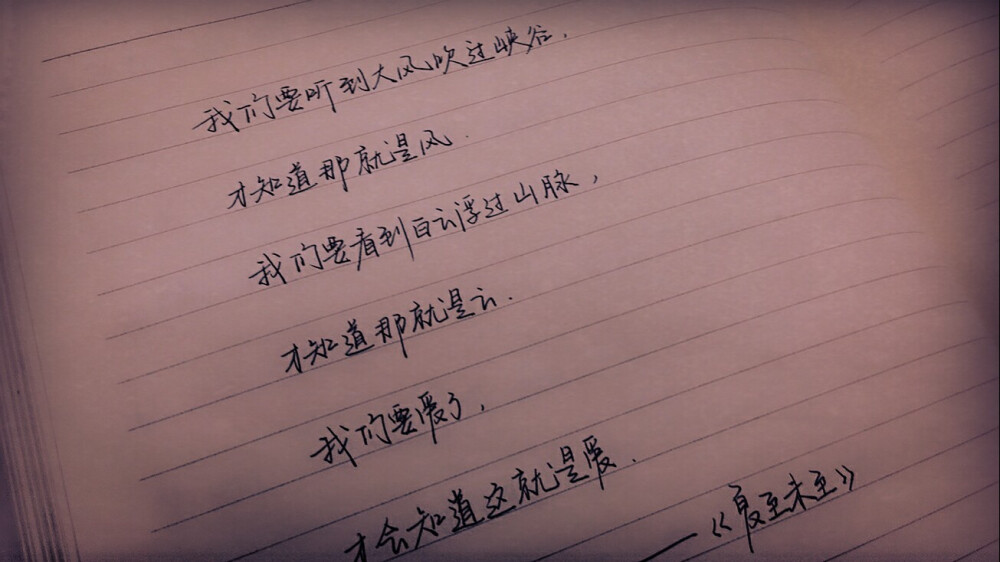 我们要听到大风吹过峡谷.
才知道那就是风.
我们要看到白云浮过山脉,
才知道那就是云.
我们要爱了,
才会知道这就是爱.
——《夏至未至》